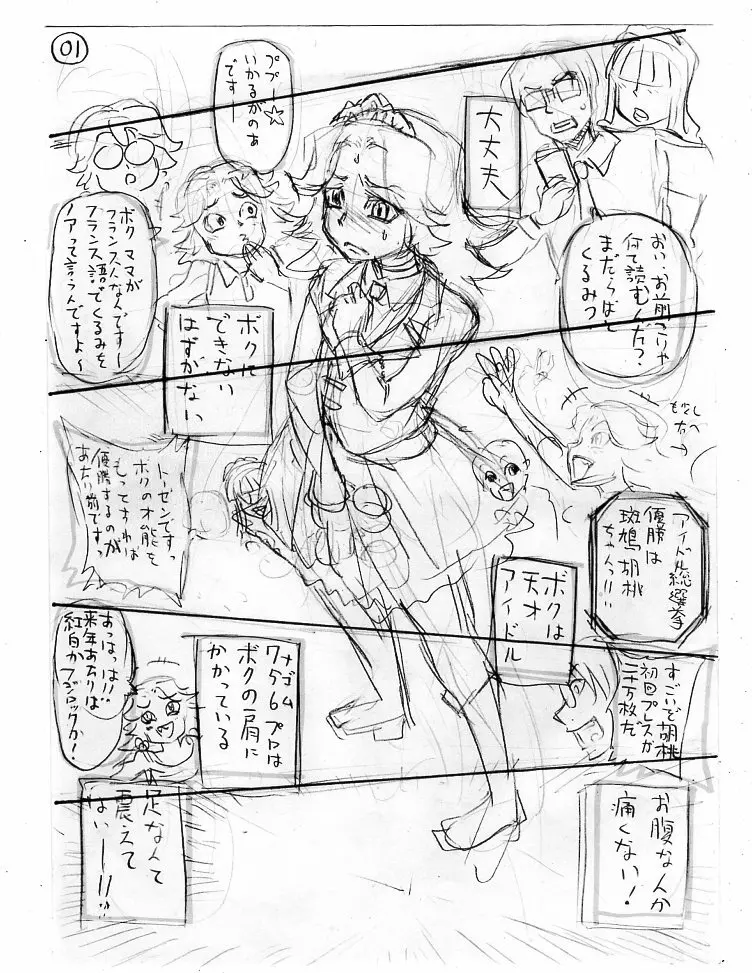 01
おい、お前こりゃ
何て読むんだっ?
まだらばと
くるみっ
大丈夫
ププー☆
いかるがのぁ
ですー
ボクママが
フランス人なんですー
フランス語でくるみを
ノアって言うんですよ〜
ボクに
できない
はずがない
アイドル総選挙
優勝は
斑鳩胡桃
ちゃんっ!!
トーゼンですっ
ボクの才能を
もってすれば
優勝するのが
あたり前ですっ
ボクは
天才
アイドル
すごいぞ胡桃
初回プレスが
二十万枚だ
プロは
ボクの肩に
かかっている
おっはっは!!
来年あたりは
紅白かフジロックか!
お腹なんか
痛くない!
足なんて
震えて
ないー!!